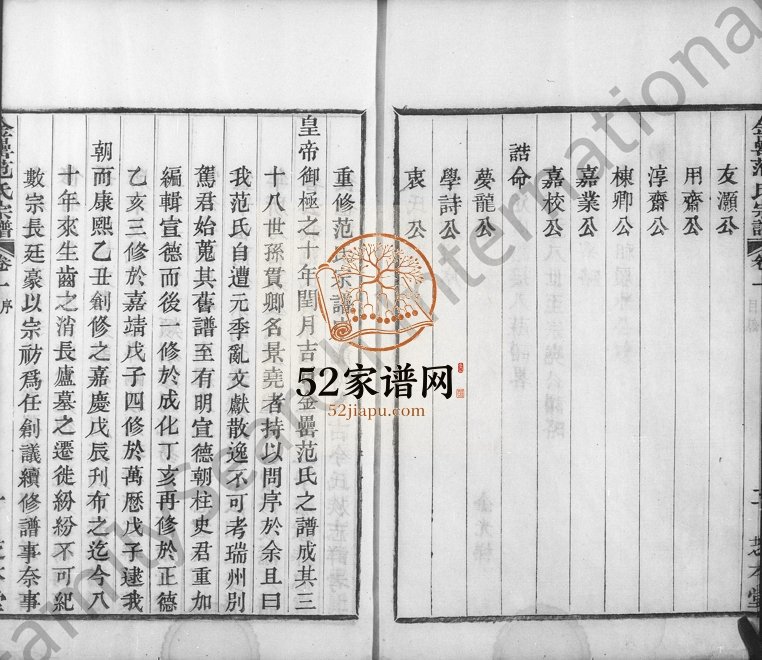 金罍范氏宗譜 卷一 目錄
友灝公
用齋公
淳齋公
棟卿公
嘉業公
嘉校公
誥命
夢龍公
學詩公
衷 公
重修范氏宗譜
皇帝御極之十年閏月吉 金罍范氏之譜成其三
十八世孫貫卿名景堯者持以問序於余且曰
我范氏自遭元季亂文獻散逸不可考瑞州別
駕君始蒐其舊譜至有明宣德朝柱史君重加
編輯宣德而後一修於成化丁亥再修於正德
乙亥三修於嘉靖戊子四修於萬歷戊子逮我
朝而康熙乙丑創修之嘉慶戊辰刊布之迄今八
十年來生齒之消長廬墓之遷徙紛紛不可紀
數宗長廷豪以宗祊爲任創議續修譜事奈事
金罍范氏宗譜 卷一 序
52家谱网
52jiapu.com
FamilySearch International